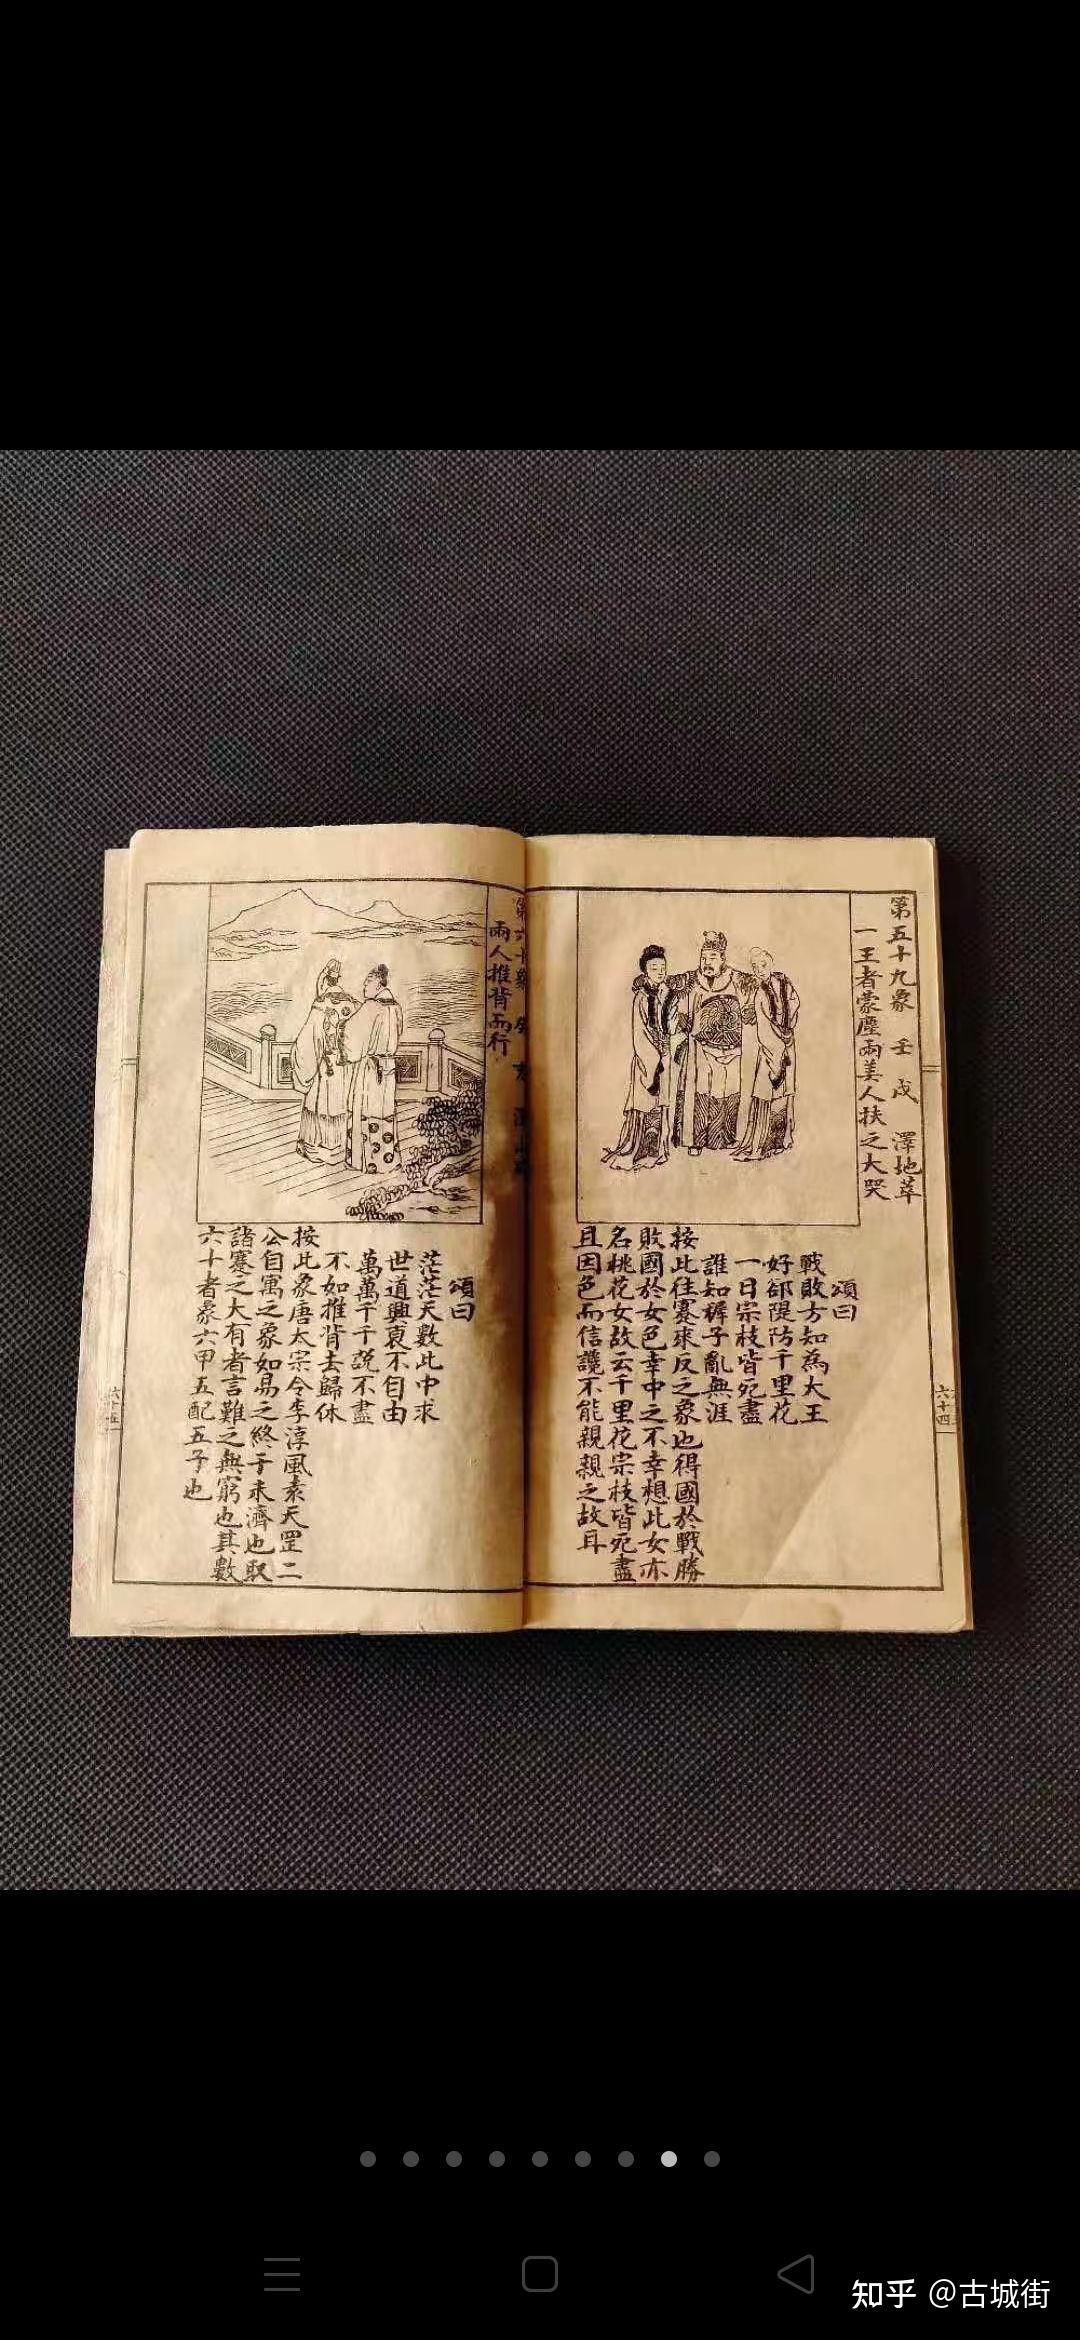 第五十九象 壬戌 澤地萃
一王者蒙塵兩美人扶之大哭
頌曰
戰敗方知為大王
好邵隄防千里花
一日宗枝皆宛盡
誰知穉子亂無涯
按此往蹇來反之象也得國於戰勝
敗國於女色幸中之不幸想此女亦
名桃花女故云千里花宗枝皆宛盡
且因色而信讒不能親親之故耳
六十四
第六十象
兩人推背而行
頌曰
茫茫天數此中求
世道興衰不自由
萬萬千千說不盡
不如推背去歸休
按此象唐太宗令李淳風袁天罡二
公自寓之象如易之終于未濟也取
諸蹇之大有者言難之無窮也其數
六十者象六甲五配五子也
六十五
知乎 @古城街